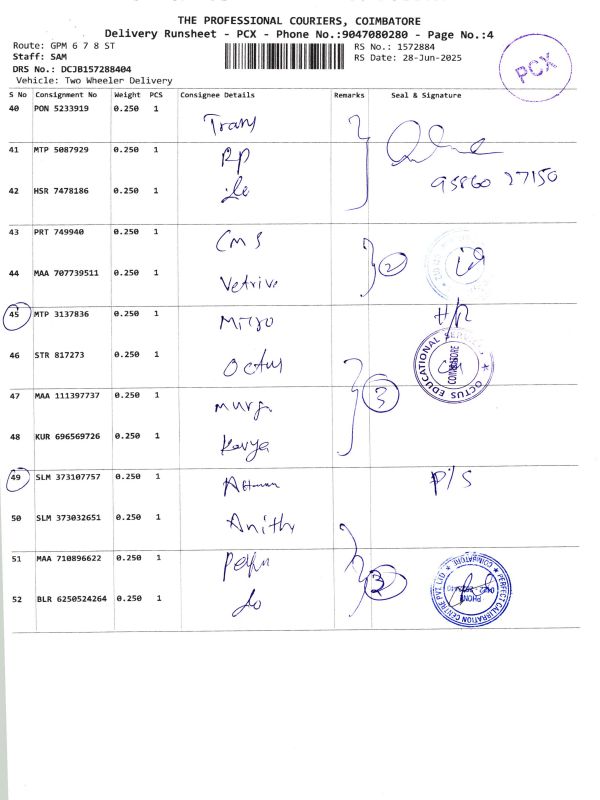 THE PROFESSIONAL COURIERS, COIMBATORE
Delivery Runsheet - PCX - Phone No.:9047080280 - Page No.:4
Route: GPM 6 7 8 ST
RS No.: 1572884
Staff: SAM
RS Date: 28-Jun-2025
DRS No.: DCJB157288404
Vehicle: Two Wheeler Delivery
PCX
S No Consignment No Weight PCS Consignee Details Remarks Seal & Signature
40 PON 5233919 0.250 1 Trans
41 MTP 5087929 0.250 1 RP
42 HSR 7478186 0.250 1
95860 27150
43 PRT 749940 0.250 1 CMS
44 MAA 707739511 0.250 1 Vetrive 2
45 MTP 3137836 0.250 1 Micro H/R
46 STR 817273 0.250 1 Octus
OCTUS EDUCATIONAL SERVICES
COIMBATORE
47 MAA 111397737 0.250 1 Murga 3
48 KUR 696569726 0.250 1 Kavya
49 SLM 373107757 0.250 1 P/S
50 SLM 373032651 0.250 1 Anith
51 MAA 710896622 0.250 1
52 BLR 6250524264 0.250 1 do
PERFECT CALIBRATION CENTRE PVT LTD
COIMBATORE
PHONE